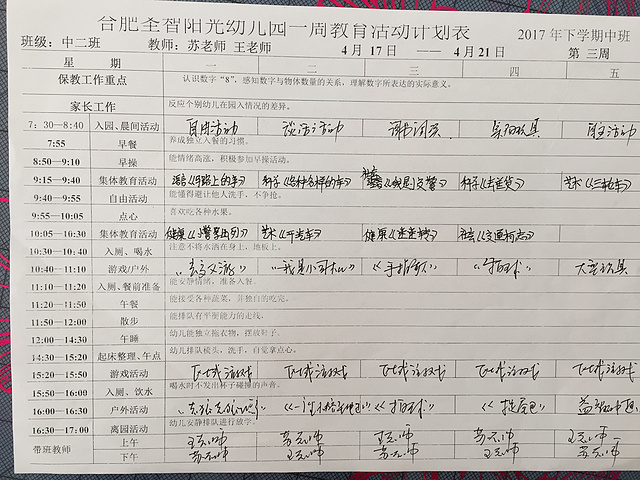 合肥全智阳光幼儿园一周教育活动计划表
班级：中二班 教师：苏老师 王老师 4月17日 —— 4月21日 2017年下学期中班 第三周
星 期 一 二 三 四 五
保教工作重点 认识数字“8”，感知数字与物体数量的关系，理解数字所表达的实际意义。
家长工作 反应个别幼儿在园入情况的差异。
7：30—8:40 入园、晨间活动 自由活动 谈话活动 桌面玩具 自主活动
7:55 早餐 养成独立入餐的习惯。
8:50—9:10 早操 能情绪高涨，积极参加早操活动。
9:15—9:40 集体教育活动 语言《马路上的车》 科学《各种各样的车》 社会《我是小交警》 科学《去进货》 艺术《三轮车》
9:40—9:55 自由活动 能懂得避让他人洗手，不争抢。
9:55—10:05 点心 喜欢吃各种水果。
10:05—10:30 集体教育活动 健康《小警果出列》 艺术《开汽车》 健康 社会《交通标志》
10:30—10:40 入厕、喝水 注意不将水洒在身上、地板上。
10:40—11:10 游戏/户外 《我是小司机》 大型玩具
11:10—11:20 入厕、餐前准备 能安静情绪，准备入餐。
11:20—11:50 午餐 能接受各种蔬菜，并独自的吃完。
11:50—12:00 散步 能排队有平衡能力的走线。
12:00—14:30 午睡 幼儿能独立拖衣物，摆放鞋子。
14:30—15:20 起床整理、午点 幼儿排队梳头，洗手，自觉拿点心。
15:20—15:50 游戏活动 区域游戏 区域游戏 区域游戏 区域游戏 区域游戏
15:50—16:00 入厕、饮水 喝水时不发出杯子碰撞的声音。
16:00—16:30 户外活动 《拍球》
16:30—17:00 离园活动 幼儿安静排队进行放学。
带班教师 上午 王老师 苏老师 王老师 苏老师 王老师
下午 苏老师 王老师 苏老师 王老师 苏老师